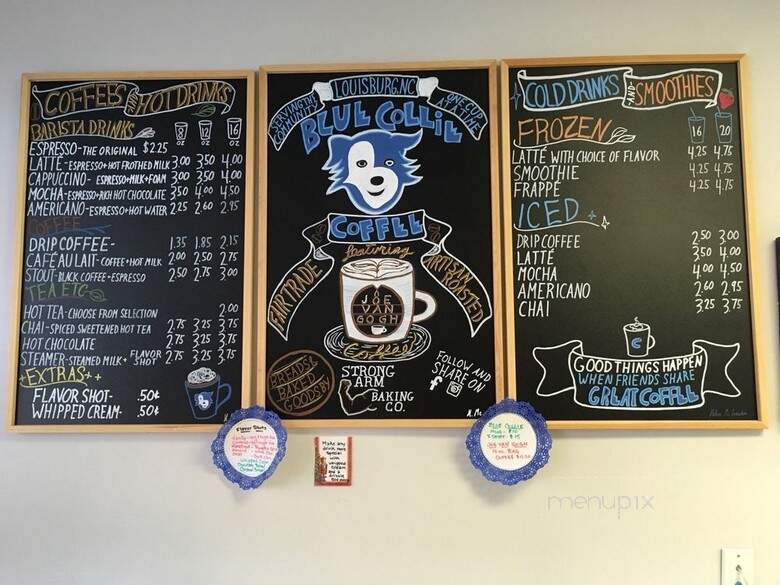 COFFEES AND HOT DRINKS
BARISTA DRINKS 8 OZ 12 OZ 16 OZ
ESPRESSO - THE ORIGINAL $2.25
LATTE - ESPRESSO + HOT FROTHED MILK 3.00 3.50 4.00
CAPPUCCINO - ESPRESSO + MILK + FOAM 3.00 3.50 4.00
MOCHA - ESPRESSO + RICH HOT CHOCOLATE 3.50 4.00 4.50
AMERICANO - ESPRESSO + HOT WATER 2.25 2.60 2.95
COFFEE
DRIP COFFEE - 1.35 1.85 2.15
CAFÉ AU LAIT - COFFEE + HOT MILK 2.00 2.50 2.75
STOUT - BLACK COFFEE + ESPRESSO 2.50 2.75 3.00
TEA ETC
HOT TEA - CHOOSE FROM SELECTION 2.00
CHAI - SPICED SWEETENED HOT TEA 2.75 3.25 3.75
HOT CHOCOLATE 2.75 3.25 3.75
STEAMER - STEAMED MILK + FLAVOR SHOT 2.75 3.25 3.75
+EXTRAS+
FLAVOR SHOT- .50¢
WHIPPED CREAM- .50¢
LOUISBURG, NC
SERVING THE COMMUNITY
ONE CUP AT A TIME
BLUE COLLIE
COFFEE
featuring
FAIR TRADE
ARTISAN ROASTED
JOE VAN GOGH
Coffee
BREADS & BAKED GOODS BY
STRONG ARM BAKING CO.
FOLLOW AND SHARE ON
COLD DRINKS AND SMOOTHIES
FROZEN 16 20
LATTÉ WITH CHOICE OF FLAVOR 4.25 4.75
SMOOTHIE 4.25 4.75
FRAPPÉ 4.25 4.75
ICED
DRIP COFFEE 2.50 3.00
LATTÉ 3.50 4.00
MOCHA 4.00 4.50
AMERICANO 2.60 2.95
CHAI 3.25 3.75
C
GOOD THINGS HAPPEN
WHEN FRIENDS SHARE
GREAT COFFEE
Flavor Shots
Make any
drink more
special
with
whipped
cream
and a
BLUE COLLIE
JOE VAN GOGH
menupix